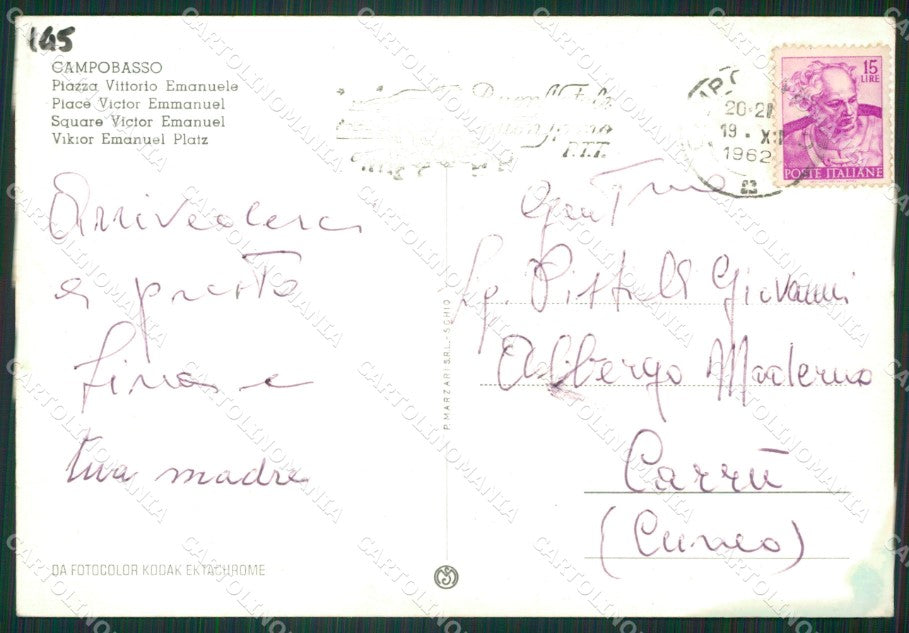 165
CAMPOBASSO
Piazza Vittorio Emanuele
Place Victor Emmanuel
Square Victor Emanuel
Viktor Emanuel Platz
Arrivederci
a presto
Lina e
tua madre
DA FOTOCOLOR KODAK EKTACHROME
P. MARZARI S.R.L. - SCHIO
T.T.T.
20-21
19. XII
1962
15
LIRE
POSTE ITALIANE
Sig. Giovanni
Albergo Moderno
Carrù
(Cuneo)
CARTOLINOMANIA